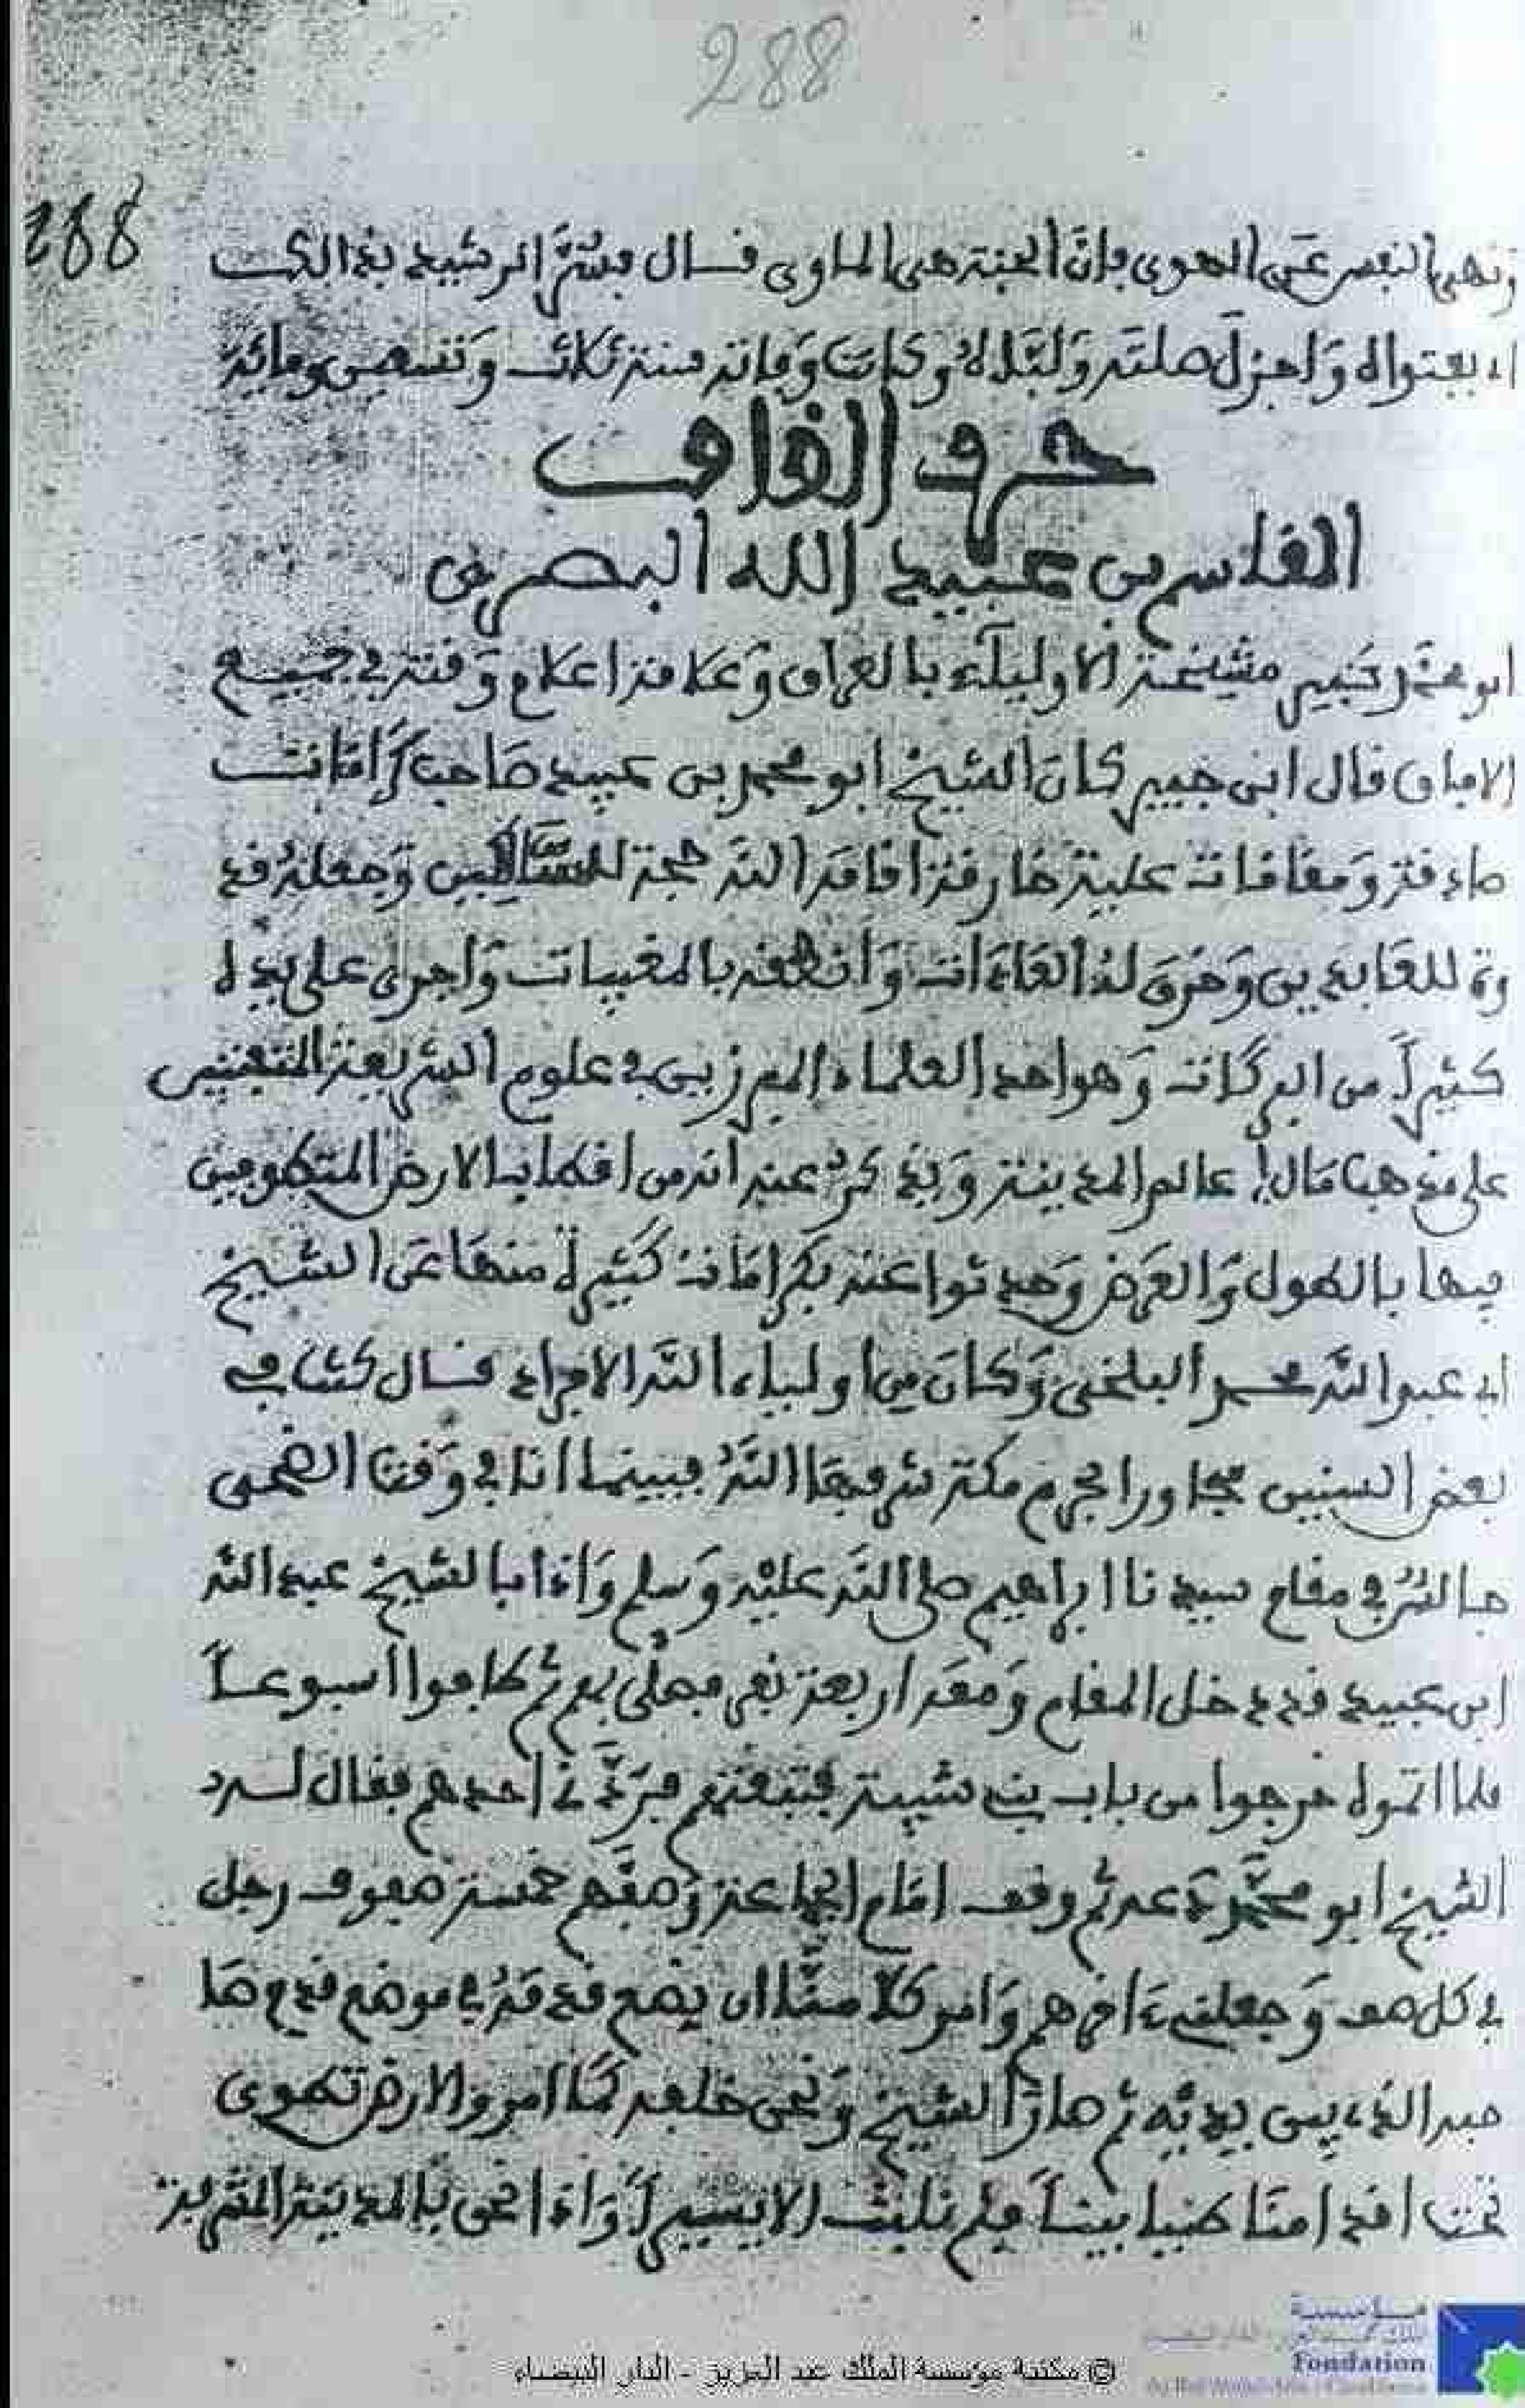 288
288
ونهى النفس عن الهوى فإن الجنة هي المأوى فسال فبشر الرشيد بذالك
وأجزل صلته وكانت وفاته سنة ثلاث وتسعين ومائة
حرف القاف
القاسم بن عبيد الله البصري
ابو محمد مشيخة الاولياء بالعراق وعلامة اعلام وقته في جميع
الافاق قال كان الشيخ ابو محمد بن عبيد صاحب كرامات
صادقة ومقامات علية خارقة اقامه الله حجة للسالكين وجعله قد
وة للعابدين وخرق له العادات وانطقه بالمغيبات واجرى على يده
كثيرا من البركات وهو احد العلماء المبرزين في علوم الشريعة المتفننين
على مذهب مالك عالم المدينة ويذكر عنه انه من اقطاب الارض المتصرفين
فيها بالطول والعرض وحدثوا عنه بكرامات كثيرة منها عن الشيخ
ابي عبد الله محمد البلخي وكان من اولياء الله الافراد قال كنت في
بعض السنين مجاورا بحرم مكة شرفها الله فبينما انا في وقت الضحى
جالس في مقام سيدنا ابراهيم صلى الله عليه وسلم واذا بالشيخ عبد الله
ابن عبيد قد دخل المقام ومعه اربعة نفر فصلى بهم ثم طافوا اسبوعا
فلما اتموه خرجوا من باب بني شيبة فتبعتهم فردني احدهم فقال له
الشيخ ابو محمد دعه ثم وقف امام الجماعة وصفهم خمسة صفوف رجل
في كل صف وجعلني ءاخرهم وامر كلا منا ان يضع قدمه في موضع قدم صا
حبه الذي بين يديه ثم سار الشيخ ونحن خلفه كما امر والارض تطوى
تحت اقدامنا طيا بينا فلم نلبث الا يسيرا واذا نحن بالمدينة المشرفة
© مكتبة مؤسسة الملك عبد العزيز - الدار البيضاء
مؤسسة
Fondation